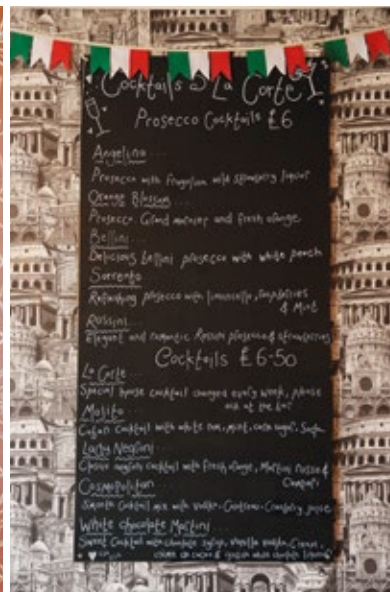 Cocktails @ La Corte
Prosecco Cocktails £6
Angelina
Prosecco with Fragolino wild strawberry liquor
Orange Blossom
Prosecco. Grand marnier and fresh orange
Bellini
Delicious bellini prosecco with white peach
Sorrento
Refreshing prosecco with limoncello, raspberries
& Mint
Rossini
Elegant and romantic Rossini prosecco & strawberries
Cocktails £6-50
La Corte
Special house cocktail changed every week, please
ask at the bar
Mojito
Cuban cocktail with white rum, mint, cane sugar, Soda
Lady Negroni
Classic negroni cocktail with fresh orange, Martini rosso &
Campari
Cosmopolitan
Smooth Cocktail mix with vodka, Cointreau, Cranberry juice
White chocolate Martini
Sweet Cocktail with chocolate syrup, Vanilla vodka, Cream,
creme de cacao & white chocolate